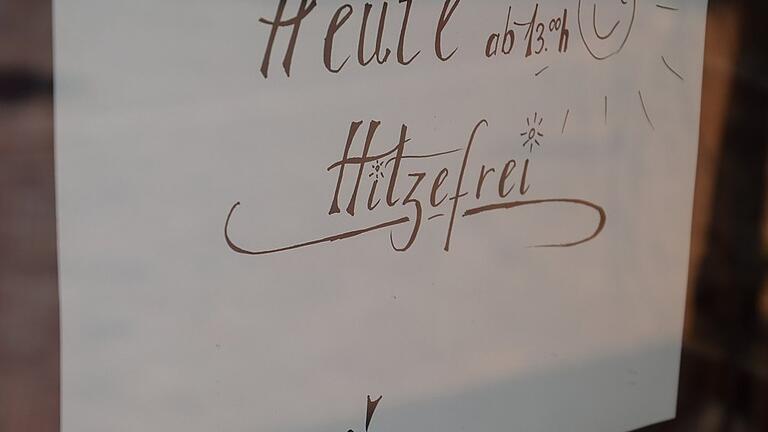 Heute ab 13.00h
Hitzefrei